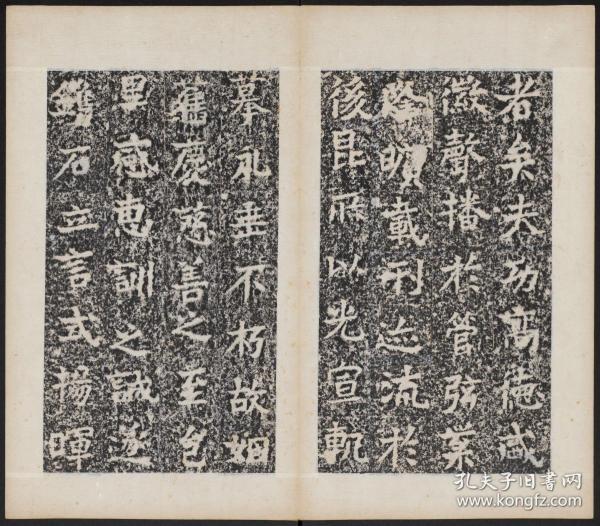 者矣夫功高德盛
徽聲播於管弦業
載刊迹流於
後昆所以光宣軌
摹永垂不朽故姻
舊慶慈善之至邑
里感惠訓之誠遂
鐫石立言式揚暉
孔夫子旧书网
www.kongfz.com